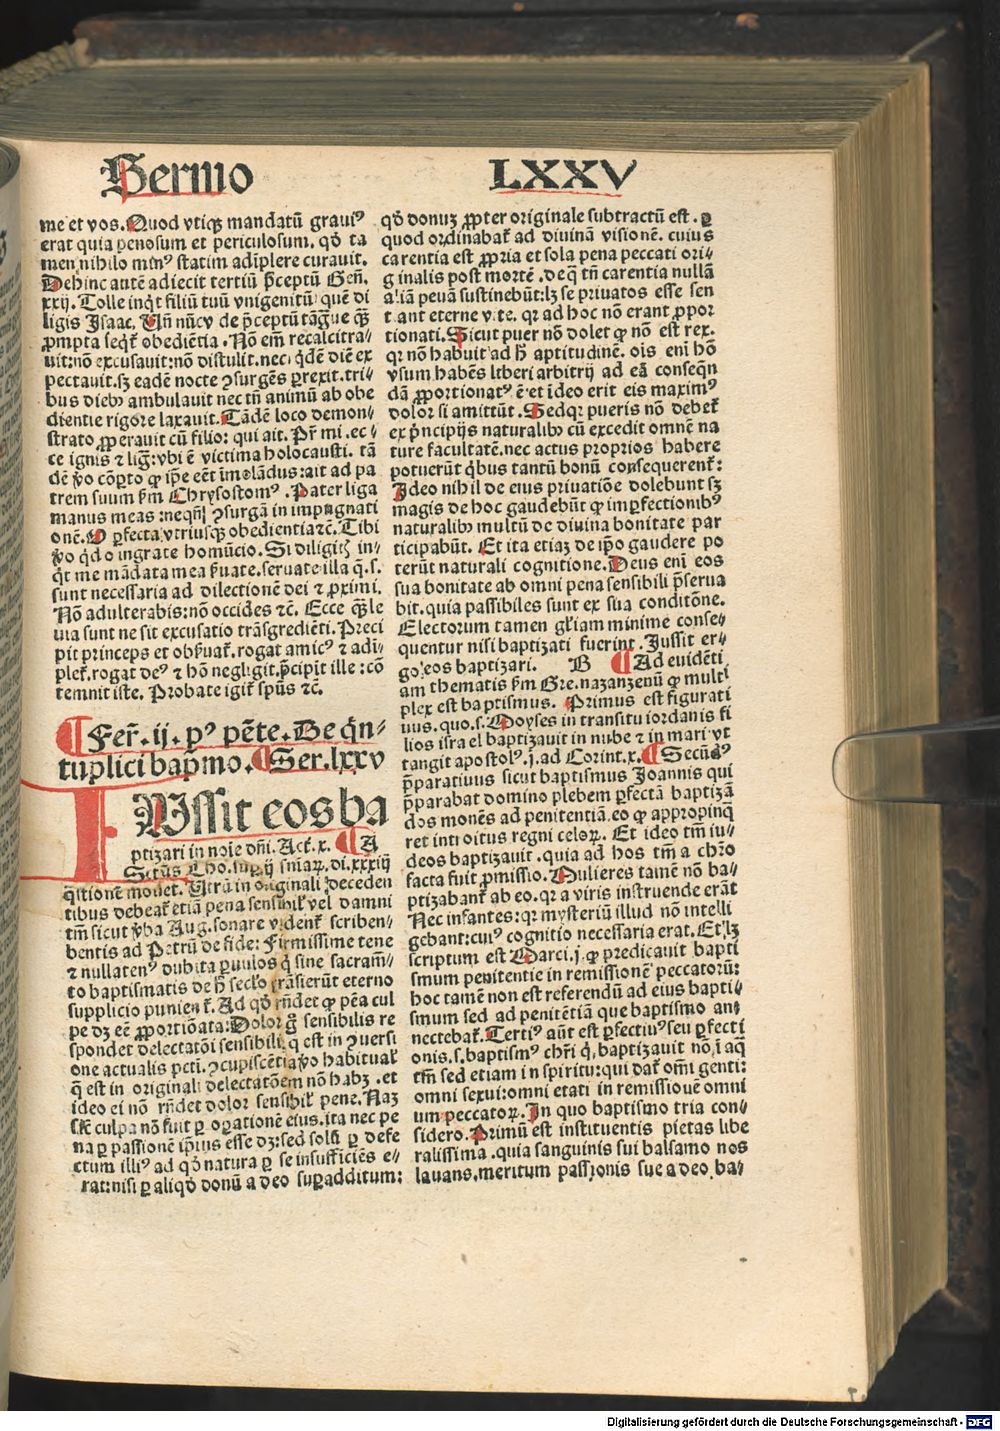 Sermo LXXV
me et vos. Quod vtiqꝫ mandatū grauiꝰ
erat quia penosum et periculosum. qđ ta
men nihilo minꝰ statim adīplere curauit.
Dehinc autē adiecit tertiū p̄ceptū Geñ.
xxij. Tolle inqͥt filiū tuū vnigenitū quē di
ligis Isaac. Uñ nūcv de p̄ceptū tāgͥue qͣꝫ
ꝓmpta seqͥt̉ obediētia. Nō em̄ recalcitra⸗
uit: nō excusauit: nō distulit. nec qͥdē diē ex
pectauit. sꝫ eadē nocte ꝯsurgēs ꝑrexit. tri⸗
bus diebꝰ ambulauit nec tñ animū ab obe
dientie rigore laxauit. Tādē loco demon⸗
strato ꝓperauit cū filio: qui ait. Pr̄ mi. ec⸗
ce ignis ⁊ lig̃: vbi ē victima holocausti. tā
dē ꝟo cōꝑto ꝙ ip̄e eēt īmolādus: ait ad pa
trem suum s̄m Chrysostomꝰ. Pater liga
manus meas: neqn̄ ꝯsurgā in impugnati
onē. O ꝑfecta vtriusqꝫ obedientia ⁊c̄. Tibi
ꝟo qͥdo ingrate homūcio. Si diligitꝭ in⸗
qͥt me mādata mea ẜuate. seruate illa q̄. s.
sunt necessaria ad dilectionē dei ⁊ ꝓximi.
Nō adulterabis: nō occides ⁊c̄. Ecce qͣꝫ le
uia sunt ne sit excusatio trāsgrediēti. Preci
pit princeps et obẜuat̉. rogat amicꝰ ⁊ adi⸗
plet̉. rogat deꝰ ⁊ hō negligit. p̄cipit ille: cō
temnit iste. Probate igit̉ spūs ⁊c̄.
¶ Fer̄. ij. pꝰ pēte. De qͥn⸗
tuplici bap̄mo. ¶ Ser. lxxv
IUssit eos ba
ptizari in noīe dn̄i. Act̉. x. ¶ A
Sctūs Tho. suꝑ iiij sn̄iaꝝ. di. xxxiij
q̄stionē mouet. Utrū in originali decedен
tibus debeat̉ etiā pena sensibil̉ vel damni
tm̄ sicut ꝟba Aug. sonare vident̉ scriben⸗
bentis ad Petrū de fide: Firmissime tene
⁊ nullatenꝰ dubita ꝑuulos qͥ sine sacram̄⸗
to baptismatis de h̄ sec̄lo trāsierūt eterno
supplicio punient̉. Ad qđ rn̄det ꝙ pēa cul
pe dꝫ eē ꝓportiōata: Dolor g̊ sensibilis re
spondet delectatōi sensibili. q̄ est in ꝯuersi
one actualis pcti. ꝯcupiscētia ꝟo habitual̉
q̄ est in originali delectatōem nō habꝫ. et
ideo ei nō rn̄det dolor sensibil̉ pene. Naꝫ
sic̄ culpa nō fuit ꝑ oꝑationē eius. ita nec pe
na ꝑ passionē ip̄ius esse dꝫ: sed solū ꝑ defe
ctum illiꝰ ad qđ natura ꝑ se insufficiēs e⸗
rat: nisi ꝑ aliqđ donū a deo suꝑadditum:
qđ donuꝫ ꝓpter originale subtractū est. ꝑ
quod ordinabat̉ ad diuinā visionē. cuius
carentia est ꝓpria et sola pena peccati ori⸗
ginalis post mortē. de q̄ tñ carentia nullā
aliā penā sustinebūt: lꝫ se priuatos esse sen
tiant eterne vite. qꝛ ad hoc nō erant ꝓpor
tionati. Sicut puer nō dolet ꝙ nō est rex.
qꝛ nō habuit ad h̄ aptitudinē. oīs enī hō
vsum habēs liberi arbitrij ad eā conseqn̄
dā ꝓportionatꝰ ē. et ideo erit eis maximꝰ
dolor si amittūt. Sed qꝛ pueris nō debet̉
ex pͥncipijs naturalibꝰ cū excedit omnē na
ture facultatē. nec actus proprios habere
potuerūt qͥbus tantū bonū consequerent̉:
Ideo nihil de eius priuatiōe dolebunt sꝫ
magis de hoc gaudebūt ꝙ imꝑfectionibꝰ
naturalibꝰ multū de diuina bonitate par
ticipabūt. Et ita etiaꝫ de ip̄o gaudere po
terūt naturali cognitione. Deus enī eos
sua bonitate ab omni pena sensibili p̄serua
bit. quia passibiles sunt ex sua conditōne.
Electorum tamen gl̄iam minime conse⸗
quentur nisi baptizati fuerint. Jussit er⸗
go eos baptizari. B ¶ Ad euidēti
am thematis s̄m Gre. nazanzenū ꝙ multi
plex est baptismus. Primus est figurati
uus. quo. s. Moyses in transitu iordanis fi
lios israel baptizauit in nube ⁊ in mari vt
tangit apostolꝰ. j. ad Corint. x. ¶ Secūdꝰ
p̄paratiuus sicut baptismus Joannis qui
p̄parabat domino plebem ꝑfectā baptizā
dos monēs ad penitentiā. eo ꝙ appropinqͣ
ret introitus regni celoꝝ. Et ideo tm̄ iu⸗
deos baptizauit. quia ad hos tm̄ a chr̄o
facta fuit ꝓmissio. Mulieres tamē nō ba⸗
ptizabant̉ ab eo. qꝛ a viris instruende erāt
Nec infantes: qꝛ mysteriū illud nō intelli
gebant: cuiꝰ cognitio necessaria erat. Et lꝫ
scriptum est Marci. j. ꝙ predicauit bapti
smum penitentie in remissionē peccatorū:
hoc tamē non est referendū ad eius bapti⸗
smum sed ad penitētiā que baptismo an⸗
nectebat̉. Tertiꝰ aūt est ꝑfectiuꝰ seu ꝑfecti
onis. s. baptismꝰ chr̄i qͥ baptizauit nō ī aqͣ
tm̄ sed etiam in spiritu: qui dat̉ om̄i genti:
omni sexui: omni etati in remissionē omni
um peccatoꝝ. In quo baptismo tria con⸗
sidero. Primū est instituentis pietas libe
ralissima. quia sanguinis sui balsamo nos
lauans. meritum passionis sue a deo ba⸗
Digitalisierung gefördert durch die Deutsche Forschungsgemeinschaft - DFG